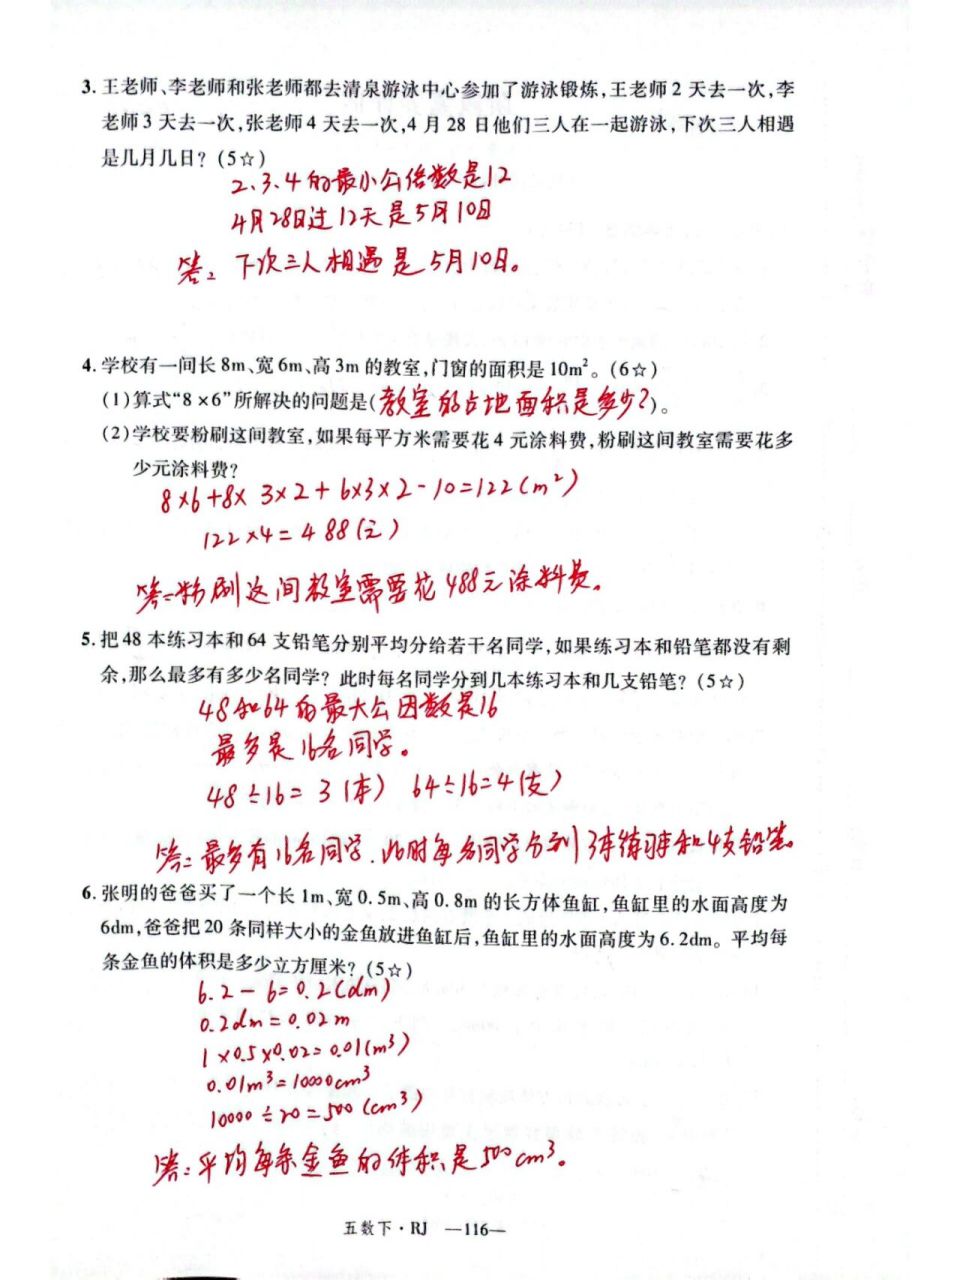 3. 王老师、李老师和张老师都去清泉游泳中心参加了游泳锻炼,王老师2天去一次,李
老师3天去一次,张老师4天去一次,4月28日他们三人在一起游泳,下次三人相遇
是几月几日?(5☆)
2、3、4的最小公倍数是12
4月28日过12天是5月10日
答:下次三人相遇是5月10日。
4. 学校有一间长8m、宽6m、高3m的教室,门窗的面积是10m²。(6☆)
(1)算式“8×6”所解决的问题是(教室的占地面积是多少?)。
(2)学校要粉刷这间教室,如果每平方米需要花4元涂料费,粉刷这间教室需要花多
少元涂料费?
8×6+8×3×2+6×3×2-10=122(m²)
122×4=488(元)
答:粉刷这间教室需要花488元涂料费。
5. 把48本练习本和64支铅笔分别平均分给若干名同学,如果练习本和铅笔都没有剩
余,那么最多有多少名同学?此时每名同学分到几本练习本和几支铅笔?(5☆)
48和64的最大公因数是16
最多是16名同学。
48÷16=3(本) 64÷16=4(支)
答:最多有16名同学.此时每名同学分到3本练习本和4支铅笔。
6. 张明的爸爸买了一个长1m、宽0.5m、高0.8m的长方体鱼缸,鱼缸里的水面高度为
6dm,爸爸把20条同样大小的金鱼放进鱼缸后,鱼缸里的水面高度为6.2dm。平均每
条金鱼的体积是多少立方厘米?(5☆)
6.2-6=0.2(dm)
0.2dm=0.02m
1×0.5×0.02=0.01(m³)
0.01m³=10000cm³
10000÷20=500(cm³)
答:平均每条金鱼的体积是500cm³。
五数下·RJ —116—